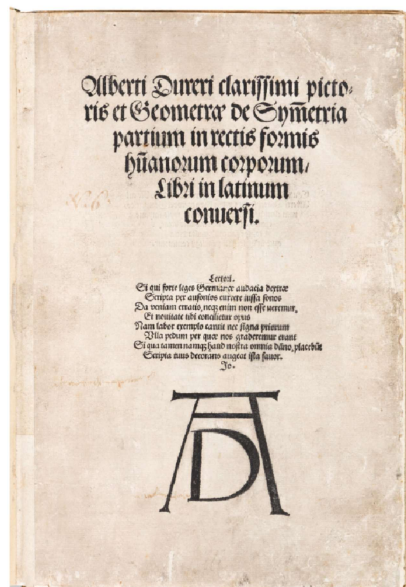 Alberti Dureri clarissimi picto-
ris et Geometræ de Sym̄etria
partium in rectis formis
hūanorum corporum/
Libri in latinum
conuersi.
Lectori.
Si qui forte leges Germanæ audacia dextræ
Scripta per ausonios currere iussa sonos
Da veniam erratis, neq; enim non esse veremur,
Et nouitate tibi concilietur opus
Nam labor exemplo caruit nec signa priorum
Vlla pedum per quæ nos graderemur erant
Si qua tamen namq; haud nostra omnia
Scripta tuus decorans augeat ista fauor.
Jo.
AD